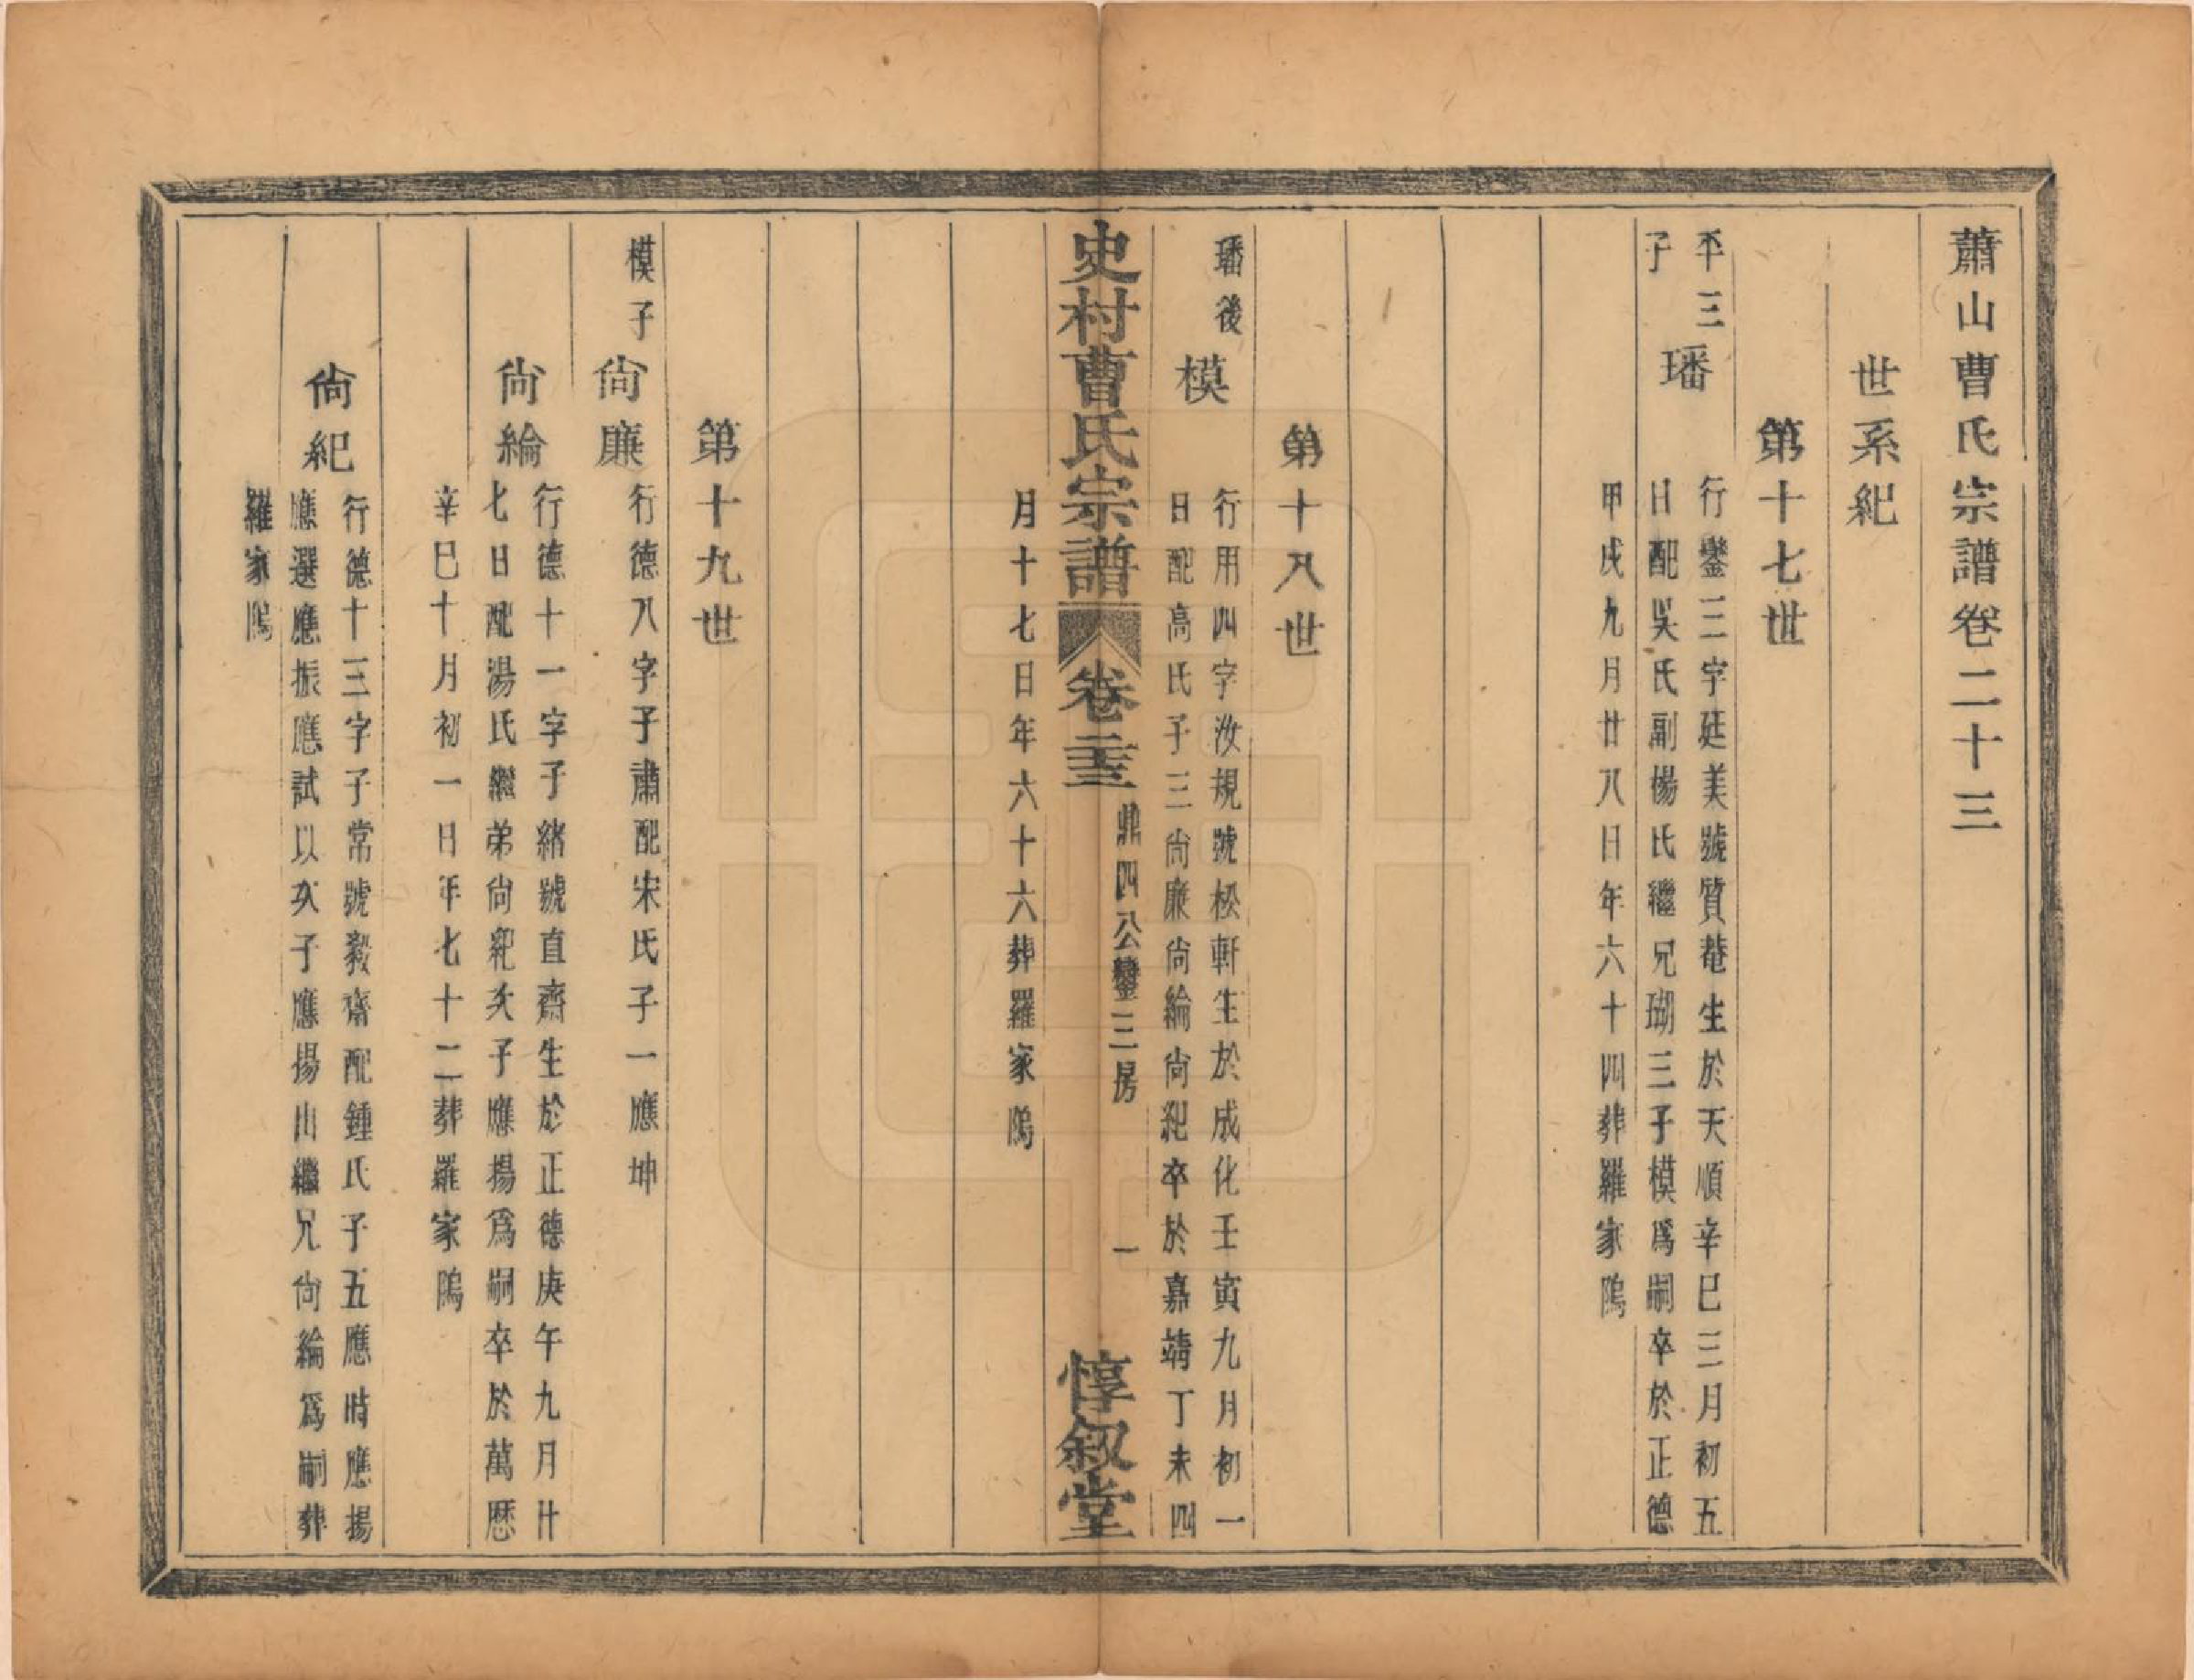 蕭山曹氏宗譜卷二十三
世系紀
第十七世
平三
子
璠
行鑾三字廷美號質菴生於天順辛巳三月初五
日配吳氏副楊氏繼兄瑚三子模爲嗣卒於正德
甲戌九月廿八日年六十四葬羅家隖
第十八世
璠後
模
行用四字汝規號松軒生於成化壬寅九月初一
日配高氏子三尙廉尙綸尙紀卒於嘉靖丁未四
月十七日年六十六葬羅家隖
史村曹氏宗譜
卷二十三
鼎四公鑾三房
一
惇叙堂
第十九世
模子
尙廉
行德八字子肅配宋氏子一應坤
尙綸
行德十一字子緒號直齋生於正德庚午九月廿
七日配湯氏繼弟尙紀次子應揚爲嗣卒於萬歷
辛巳十月初一日年七十二葬羅家隖
尙紀
行德十三字子常號毅齋配鍾氏子五應時應揚
應選應振應試以次子應揚出繼兄尙綸爲嗣葬
羅家隖